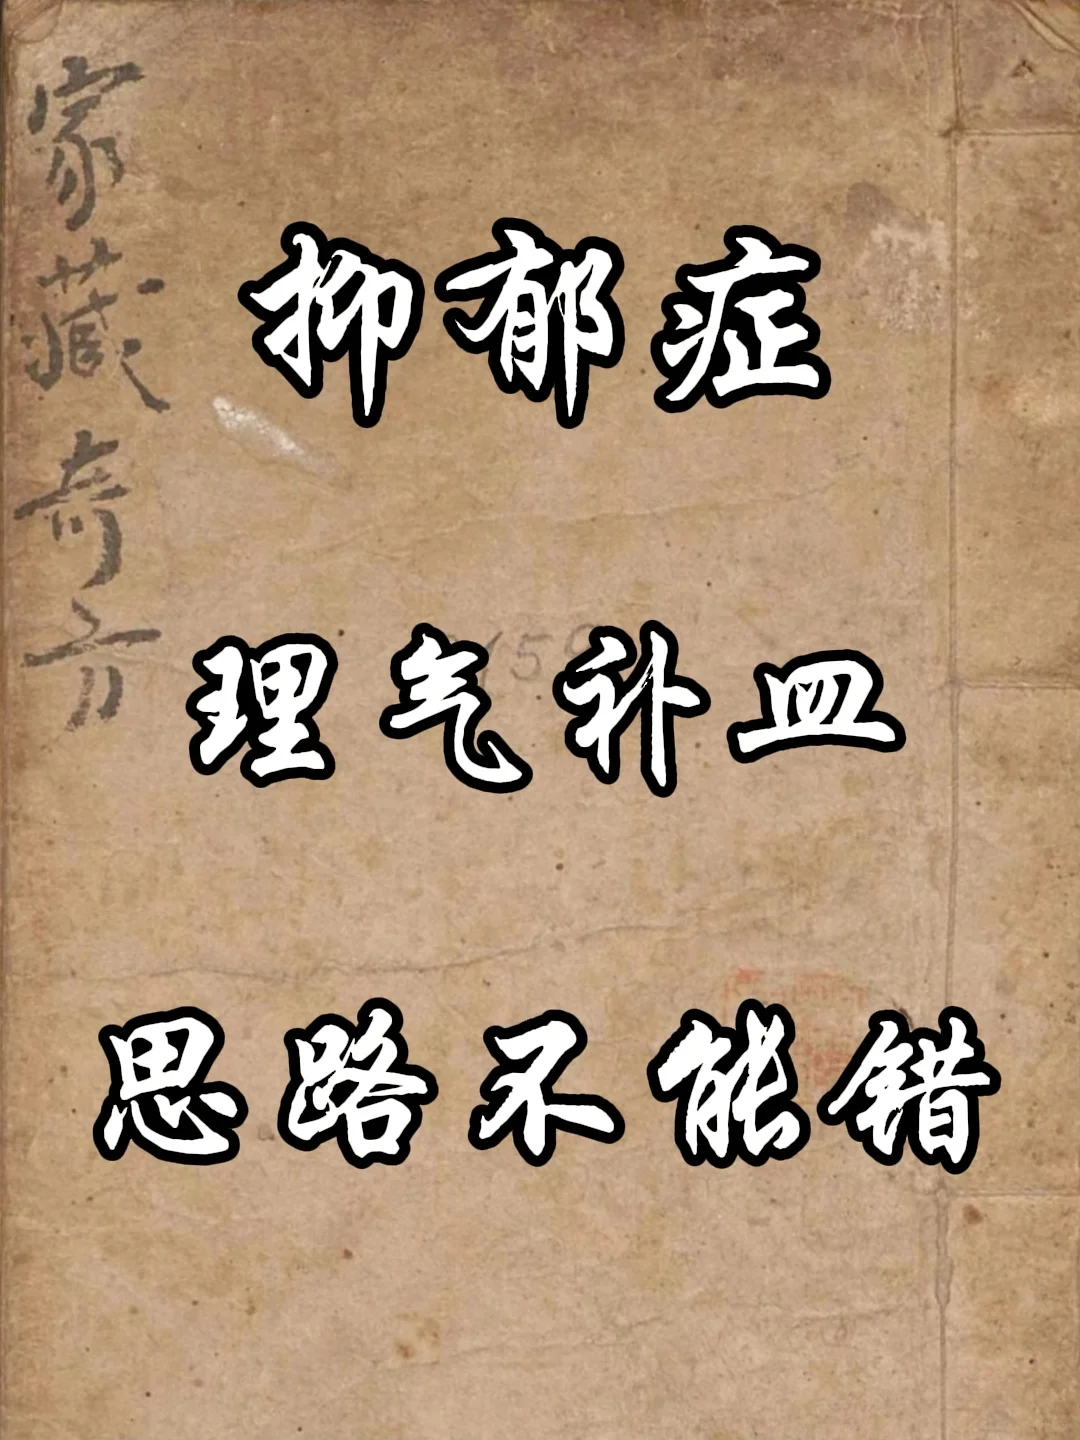 家藏奇方
抑郁症
理气补皿
思路不能错